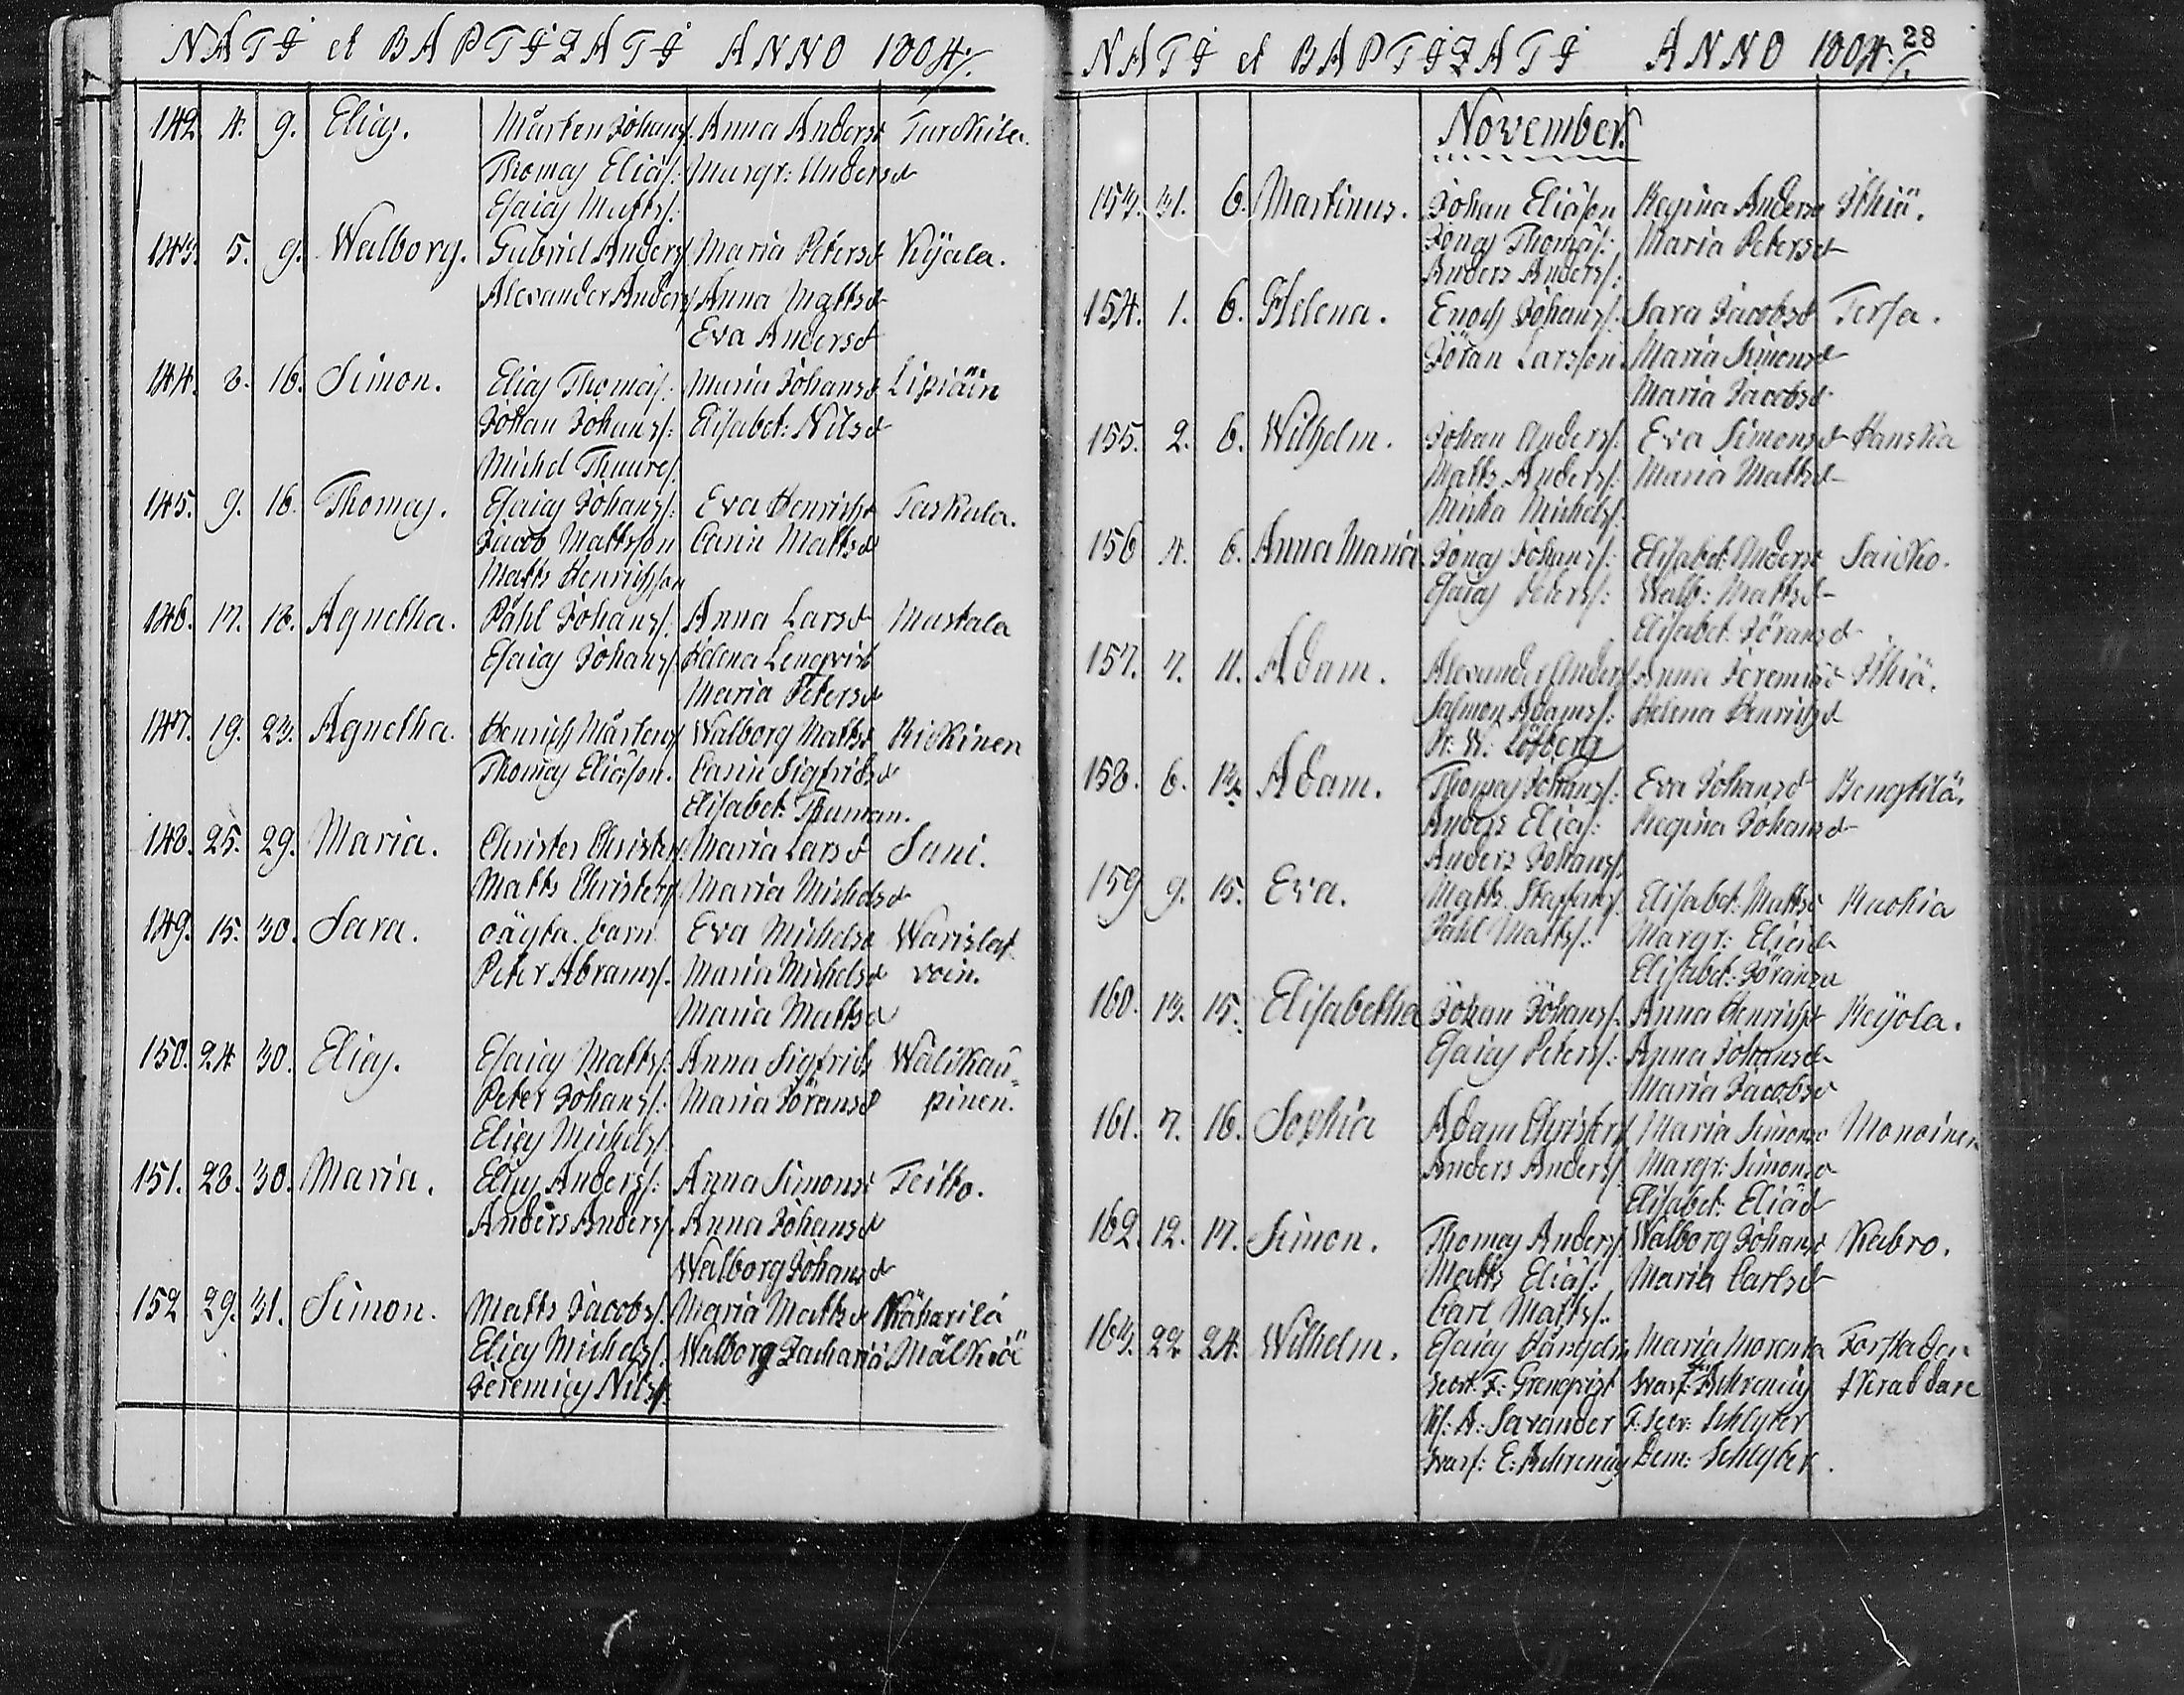 NATI et BAPTIZATI ANNO 1804/.
142. 4. 9. Elias. Mårten Johans/: Anna Andersd Turckila.
Thomas Elias/: Margr: Andersd
Esaias Matts/:
143. 5. 9. Walborg. Gabriel Anders/ Maria Petersd Kyala.
Alexander Anders/ Anna Mattsd
Eva Andersd
144. 8. 16. Simon. Elias Thomas/: Maria Johansd Lipiäin
Johan Johans/: Elisabet: Nilsd
Michel Thures/
145. 9. 16. Thomas. Esaias Johans/: Eva Henrichsd Taskula.
Jacob Mattsson Carin Mattsd
Matts Henrichsson
146. 17. 18. Agnetha. Påhl Johans/: Anna Larsd Mustala
Esaias Johans/: Helena Lenqvist
Maria Petersd
147. 19. 23. Agnetha. Henrich Mårtens/ Walborg Mattsd Rickinen
Thomas Eliäson. Carin Sigfridsd
Elisabet: Thuman.
148. 25. 29. Maria. Christer Christers/ Maria Larsd Suni.
Matts Christers/ Maria Michelsd
149. 15. 30. Sara. oäyta. barn Eva Michelsd Warislat
Peter Abrams/. Maria Michelsd voin.
Maria Mattsd
150. 24 30. Elias. Esaias Matts/: Anna Sigfrids Walikau=
Peter Johans/: Maria Göransd pinen.
Elias Michels/
151. 28. 30. Maria. Elias Anders/: Anna Simonsd Teitto.
Anders Anders/. Anna Johansd
Walborg Johansd
152 29. 31. Simon. Matts Jacobs/. Maria Mattsd Käharilä
Elias Michels/. Walborg Zacharia Mälkiä
Jeremias Nils/:
NATI et BAPTIZATI ANNO 1804./. 28
November.
153. 31. 6. Martinus. Johan Eliäson Regina Andersd Ithiä.
Jonas Thomas/: Maria Petersd
Anders Anders/:
154. 1. 6. Helena. Enoch Johans/. Sara Jacobsd Tersa.
Göran Larsson. Maria Simonsd
Maria Jacobsd
155. 2. 6. Wilhelm. Johan Anders/. Eva Simonsd Hanskia
Matts Anders/: Maria Mattsd
Michel/:
156 4. 6. Anna Maria. Jonas Johans/: Elisabet: Andersd Saicko.
Esaias Peters/: Walb: Mattsd
Elisabet: Göransd
157. 7. 11. Adam. Alexander Anders/ Anna Jeremiæd Ithiä.
Salmon Adams/: Helena Henrichsd
Löfberg
158. 6. 13. Adam. Thomas Johans/: Eva Johansd Bengtilä.
Anders Elias/: Regina Johansd
Anders Johans/.
159 9. 15. Eva. Matts Staffans/. Elisabet: Mattsd Ruokia
Påhl Matts/: Margr: Eliæd
Elisabet: Göransd
160. 13. 15. Elisabetha Johan Johans/. Anna Henrichsd Reijola.
Esaias Peters/: Anna Johansd
Maria Jacobsd
161. 7. 16. Sophia Adam Christers/ Maria Simonsd Monoinen
Anders Anders/ Margr: Simonsd
Elisabet: Eliäd
162. 12. 17. Simon. Thomas Anders/ Walborg Johansd Kabro.
Matts Elias/: Maria Carlsd
Carl Matts/.
163. 22. 24. Wilhelm. Esaias Maria Forstaden
Secrt. F: Grenqvist Ahrenius skraddare
A: Savander F: Secr: Schlyter
E: Ahrenius Dem: Schlyter.